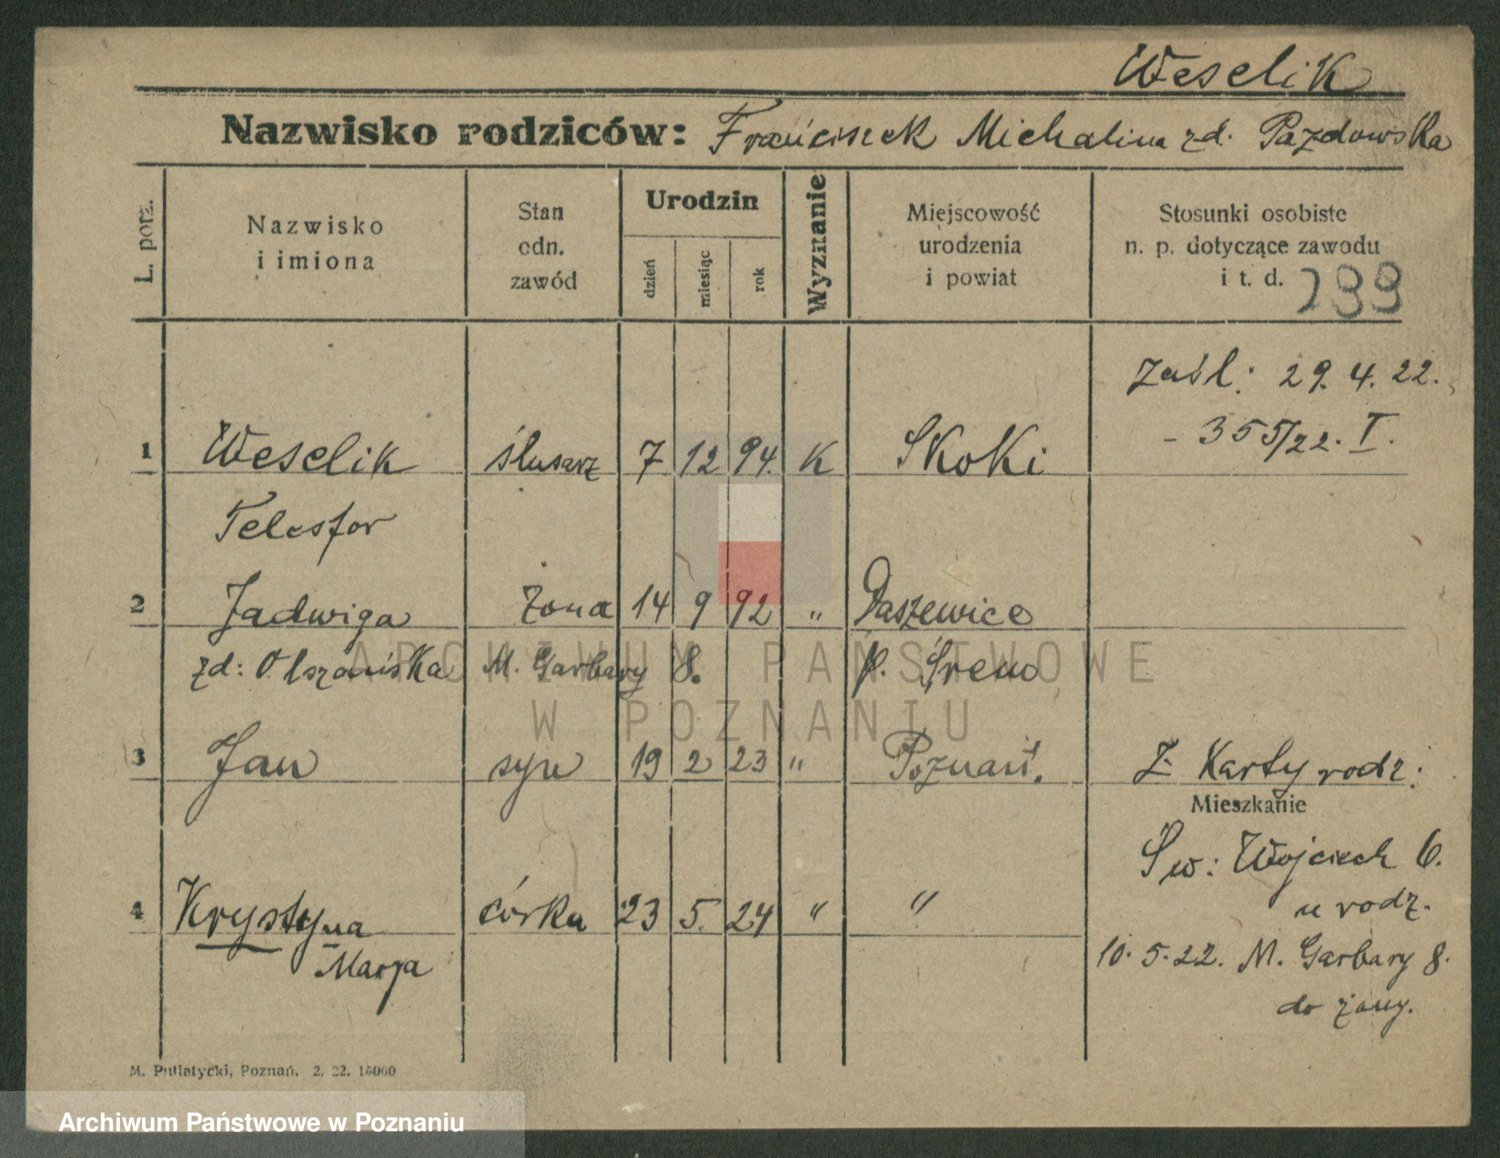 Weselik
Nazwisko rodziców: Franciszek Michalina zd. Pazdowska
L. porz.
Nazwisko
i imiona
Stan
odn.
zawód
Urodzin
dzień
miesiąc
rok
Wyznanie
Miejscowość
urodzenia
i powiat
Stosunki osobiste
n. p. dotyczące zawodu
i t. d.
299
zaśl: 29. 4. 22.
- 355/22. I.
1 Weselik ślusarz 7 12 94. K Skoki
Telesfor
2 Jadwiga żona 14 9 92 " Daszewice
zd: Olszańska M. Garbary 8. p. Śrem
3 Jan syn 19 2 23 " Poznań. Z Karty rodz:
Mieszkanie
Św: Wojciech 6.
u rodz.
4 Krystyna córka 23 5. 24 " "
Marja
10. 5. 22. M. Garbary 8.
do żony.
M. Putiatycki, Poznań. 2. 22. 15000
ARCHIWUM PAŃSTWOWE
W POZNANIU
Archiwum Państwowe w Poznaniu